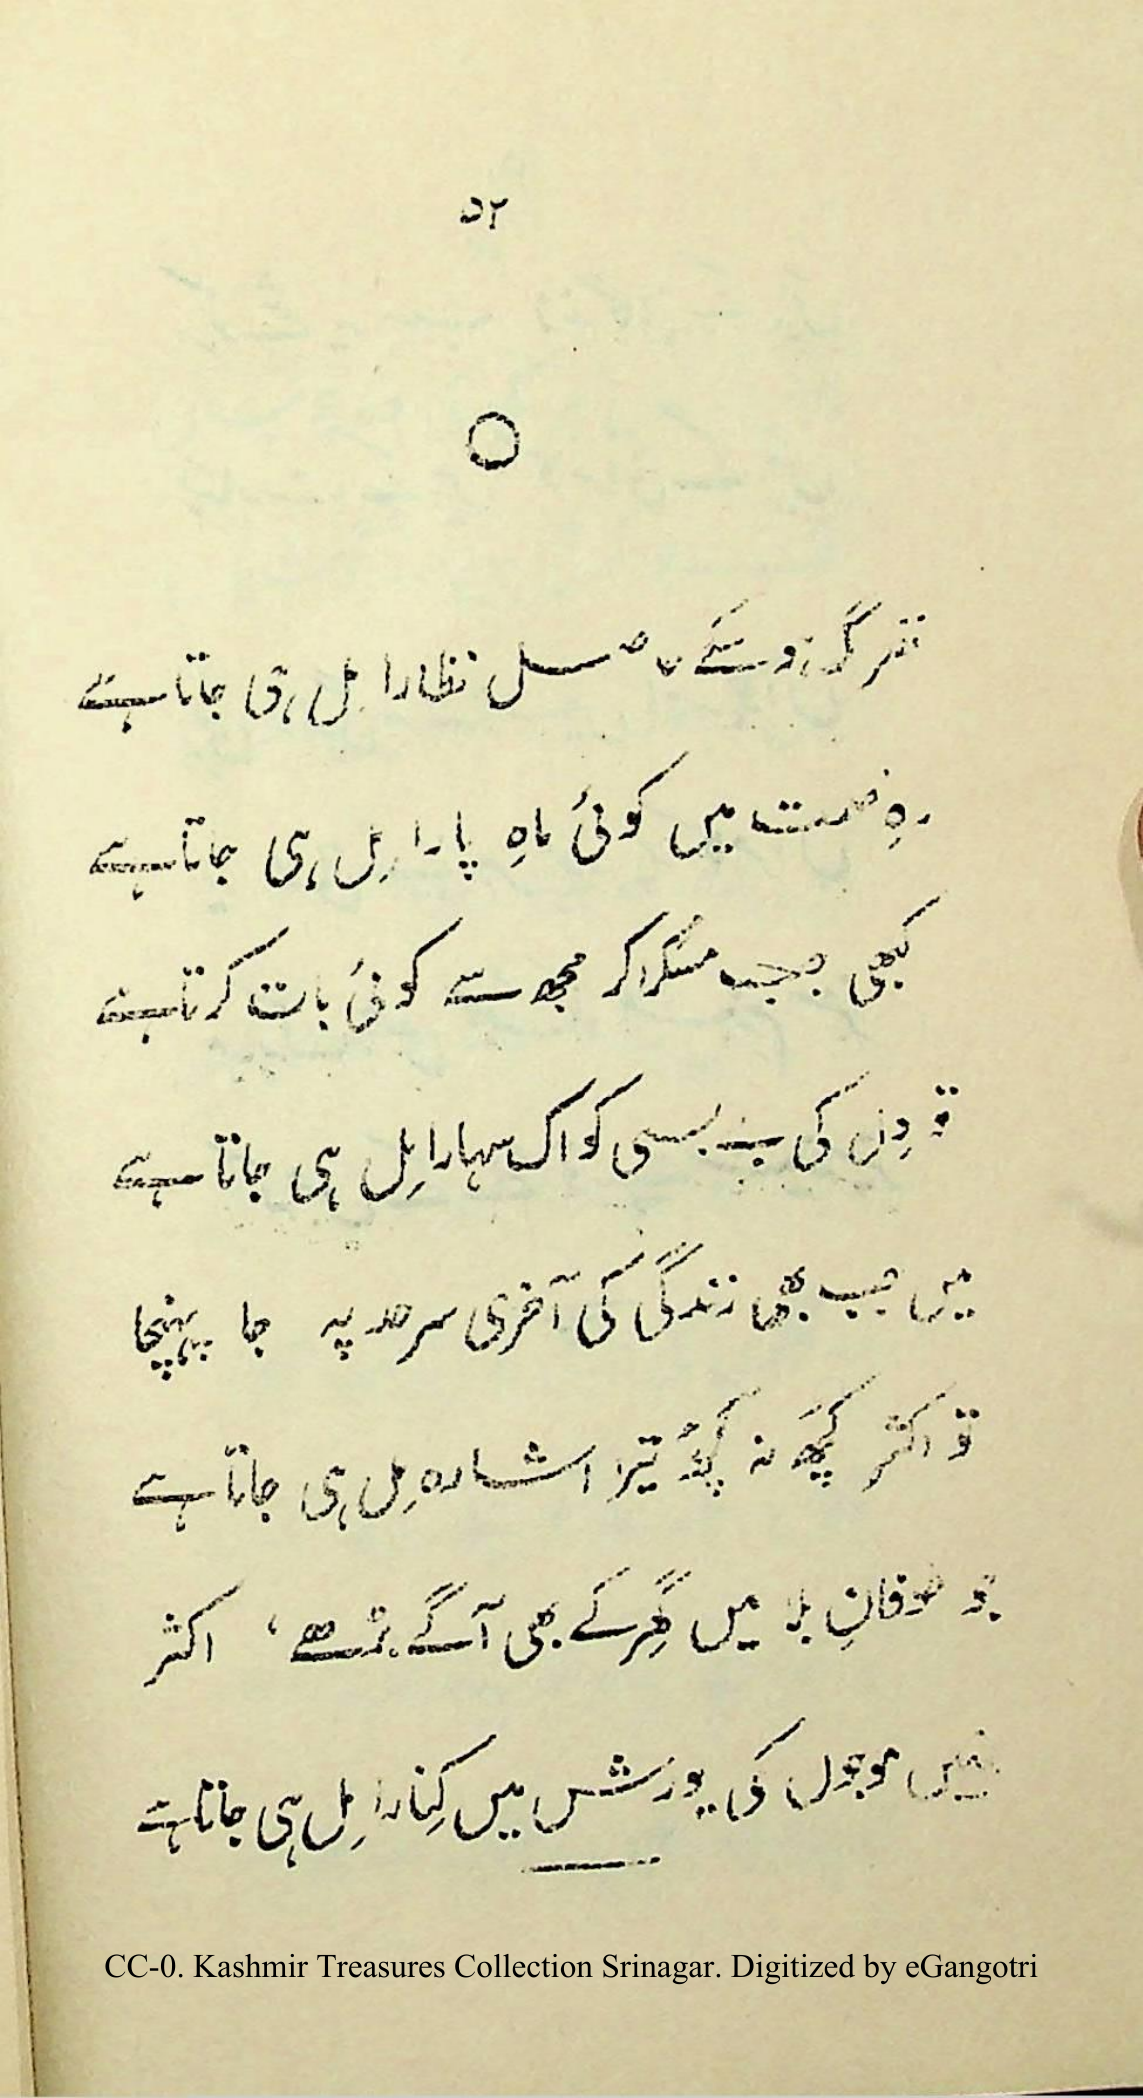 ۵۲
نظارا مل ہی جاتا ہے
میں کوئی ماہِ پارا مل ہی جاتا ہے
کبھی جب مسکرا کر مجھ سے کوئی بات کرتا ہے
تو دِل کی بے بسی کو اک سہارا مِل ہی جاتا ہے
میں جب بھی زندگی کی آخری سرحد پہ جا پہنچا
تو اکثر کچھ نہ کچھ تیرا اشارہ مِل ہی جاتا ہے
جو طوفانِ بلا میں گھِر کے بھی آگے بڑھے، اکثر
موجوں کی یورش میں کِنارا مِل ہی جاتا ہے
CC-0. Kashmir Treasures Collection Srinagar. Digitized by eGangotri